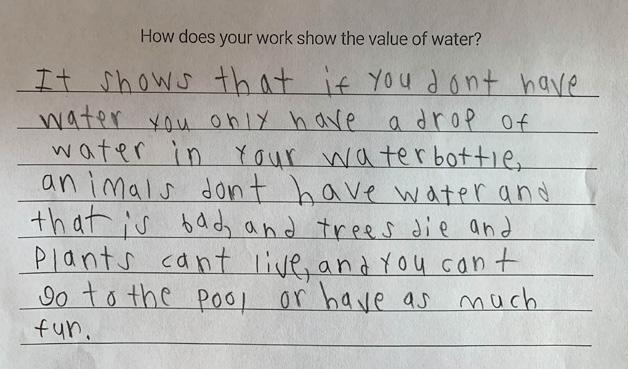 How does your work show the value of water?
It shows that if you dont have
water you only have a drop of
water in your waterbottle,
animals dont have water and
that is bad, and trees die and
Plants cant live, and you cant
go to the pool or have as much
fun.